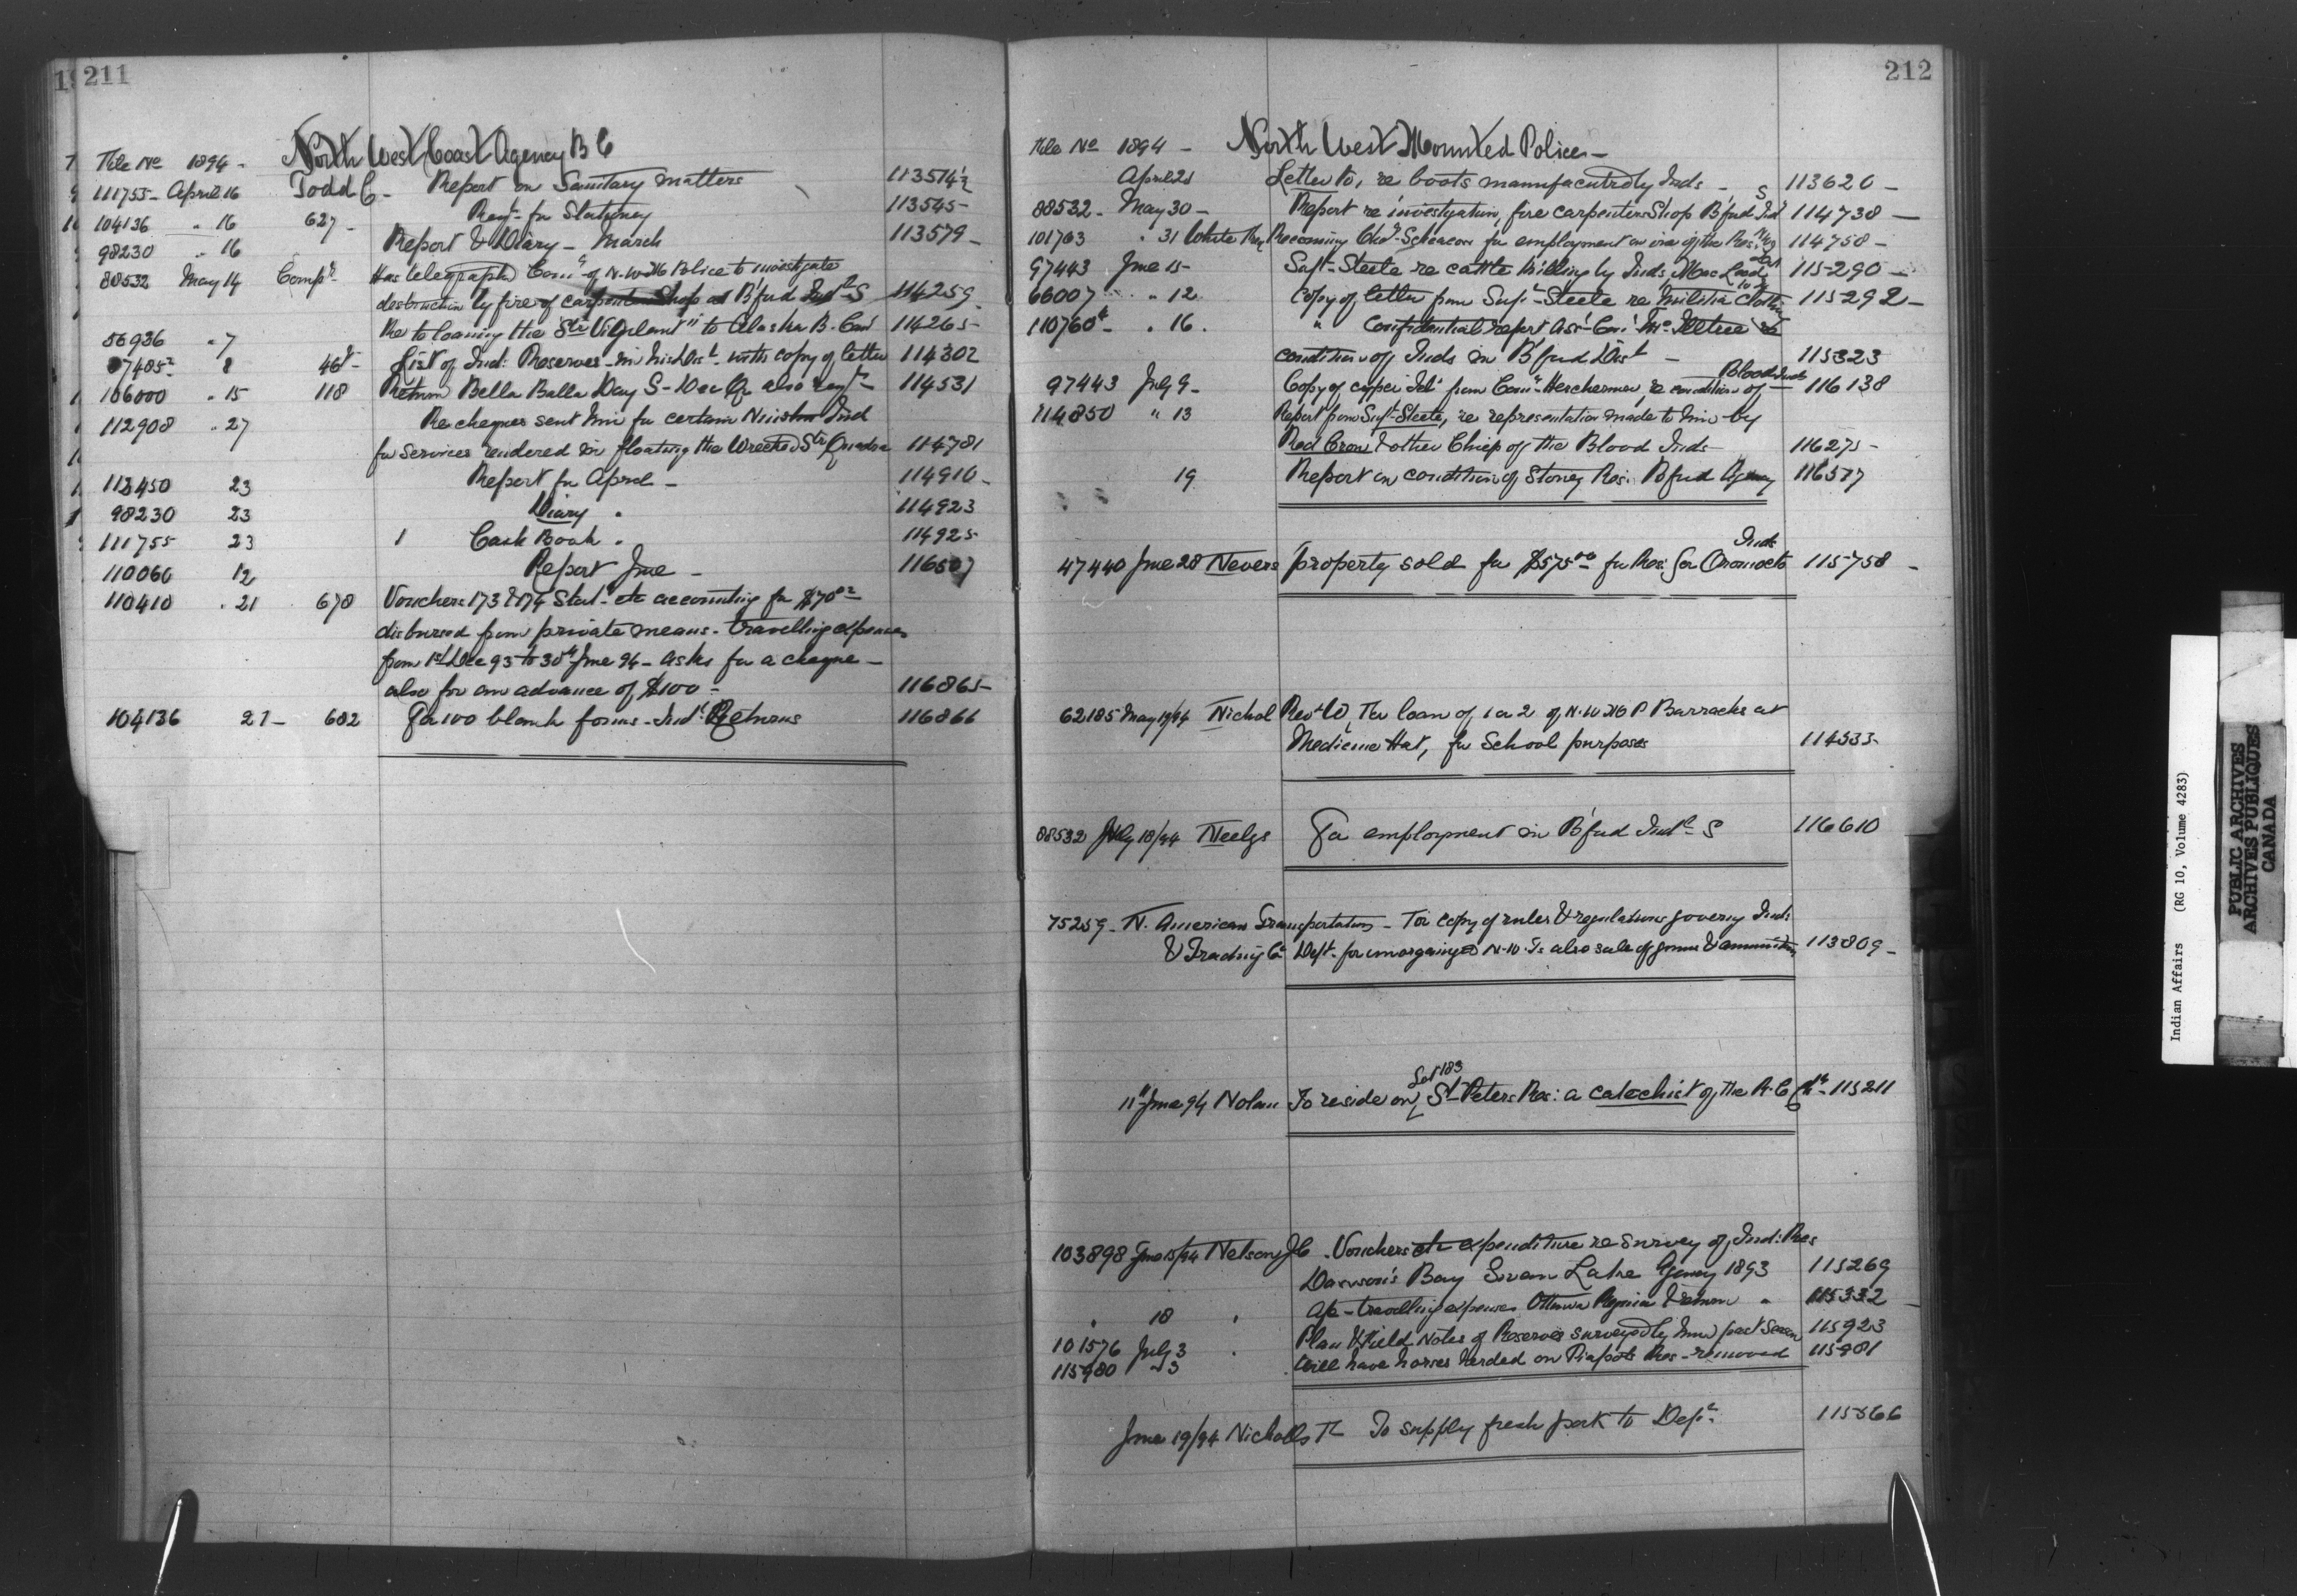 211
North West Coast Agency B C
File No 1894 -
111755 - April 16 Todd C - Report on Sanitary matters 113514½
104136 " 16 627 - Reqt for Stationery 113545 -
98230 " 16 Report & Diary - March 113579 -
88532 May 14 Compt Has telegraphed Comr of N.W.M Police to investigate
destruction by fire of carpenter Shop at B'ford Indl S 114259
56936 " 7 Re to loaning the Str "Vigilant" to Alaska B. Com 114265 -
8 46 - List of Ind: Reserves in his Dist with copy of letter 114302
106000 " 15 118 Return Bella Bella Day S - Dec Qr also reqt 114531
112908 " 27 Re cheques sent him for certain Ind
for services rendered in floating the Wrecked Str Quadra 114781
113450 23 Report for April - 114910 -
98230 23 Diary " 114923
111755 23 1 Cash Book " 114925
110060 12 Report June - 116507
110410 " 21 678 Vouchers 173 & 174 Stat. etc accounting for $70
disbursed from private means - travelling expenses
from 1st Dec 93 to 30th June 94 - asks for a cheque -
also for an advance of $100 - 116865 -
104136 21 - 682 For 100 blank forms - Indl Returns 116866
212
North West Mounted Police -
File No 1894 -
April 21 Letter to, re boots manufactured by Inds - S 113620 -
88532 - May 30 - Report re investigation, fire carpenters Shop B'ford Ind 114738 -
101763 " 31 White Recoming for employment on of the Res: 114758 -
97443 June 15 - Supt Steele re cattle killing by Inds, MacLeod 115290 -
66007 " 12 Copy of letter from Supt Steele re Militia Clothing 115292 -
110760 - " 16 . " Confidential report Asst Comr McIllree re
condition of Inds in B'ford Dist - 115323
97443 July 9 - Copy of cypher Tel from Comr Herchemer, re condition of Blood Inds 116138
114850 " 13 Report from Supt Steele, re representation made to him by
Red Crow & other Chiefs of the Blood Inds 116275 -
19 Report on condition of Stoney Res: B'ford Agency 116577
47440 June 28 Nevers property sold for $575.00 for Res: for Oromocto Inds 115758 -
62185 May 19/94 Nichol Revd W, For loan of 1 or 2 of N.W M P Barracks at
Medicine Hat, for School purposes 114333 -
88532 July 18/94 Neelys For employment in B'ford Indl S 116610
75259 - N. American Transportation - For copy of rules & regulations governg Ind:
& Trading Co Dept - for N.W. Ts also sale of & ammunition 113809 -
11th June 94 Nolan To reside on Lot 183 St Peters Res: a catechist of the R.C Ch - 115211
103898 June 15/94 Nelson J C . Vouchers etc expenditure re survey of Ind: Res
Dawson's Bay Swan Lake Agency 1893 115269
" 18 " a/c - travelling expenses Ottawa Regina & return " 115332 -
101576 July 3 " Plan & Field Notes of Reserves surveyed by him past Season 115923
115980 " 3 Will have horses herded on Piapots Res - removed 115981
June 19/94 Nicholls To supply fresh pork to Dept. 115566
Indian Affairs (RG 10, Volume 4283)
PUBLIC ARCHIVES
ARCHIVES PUBLIQUES
CANADA